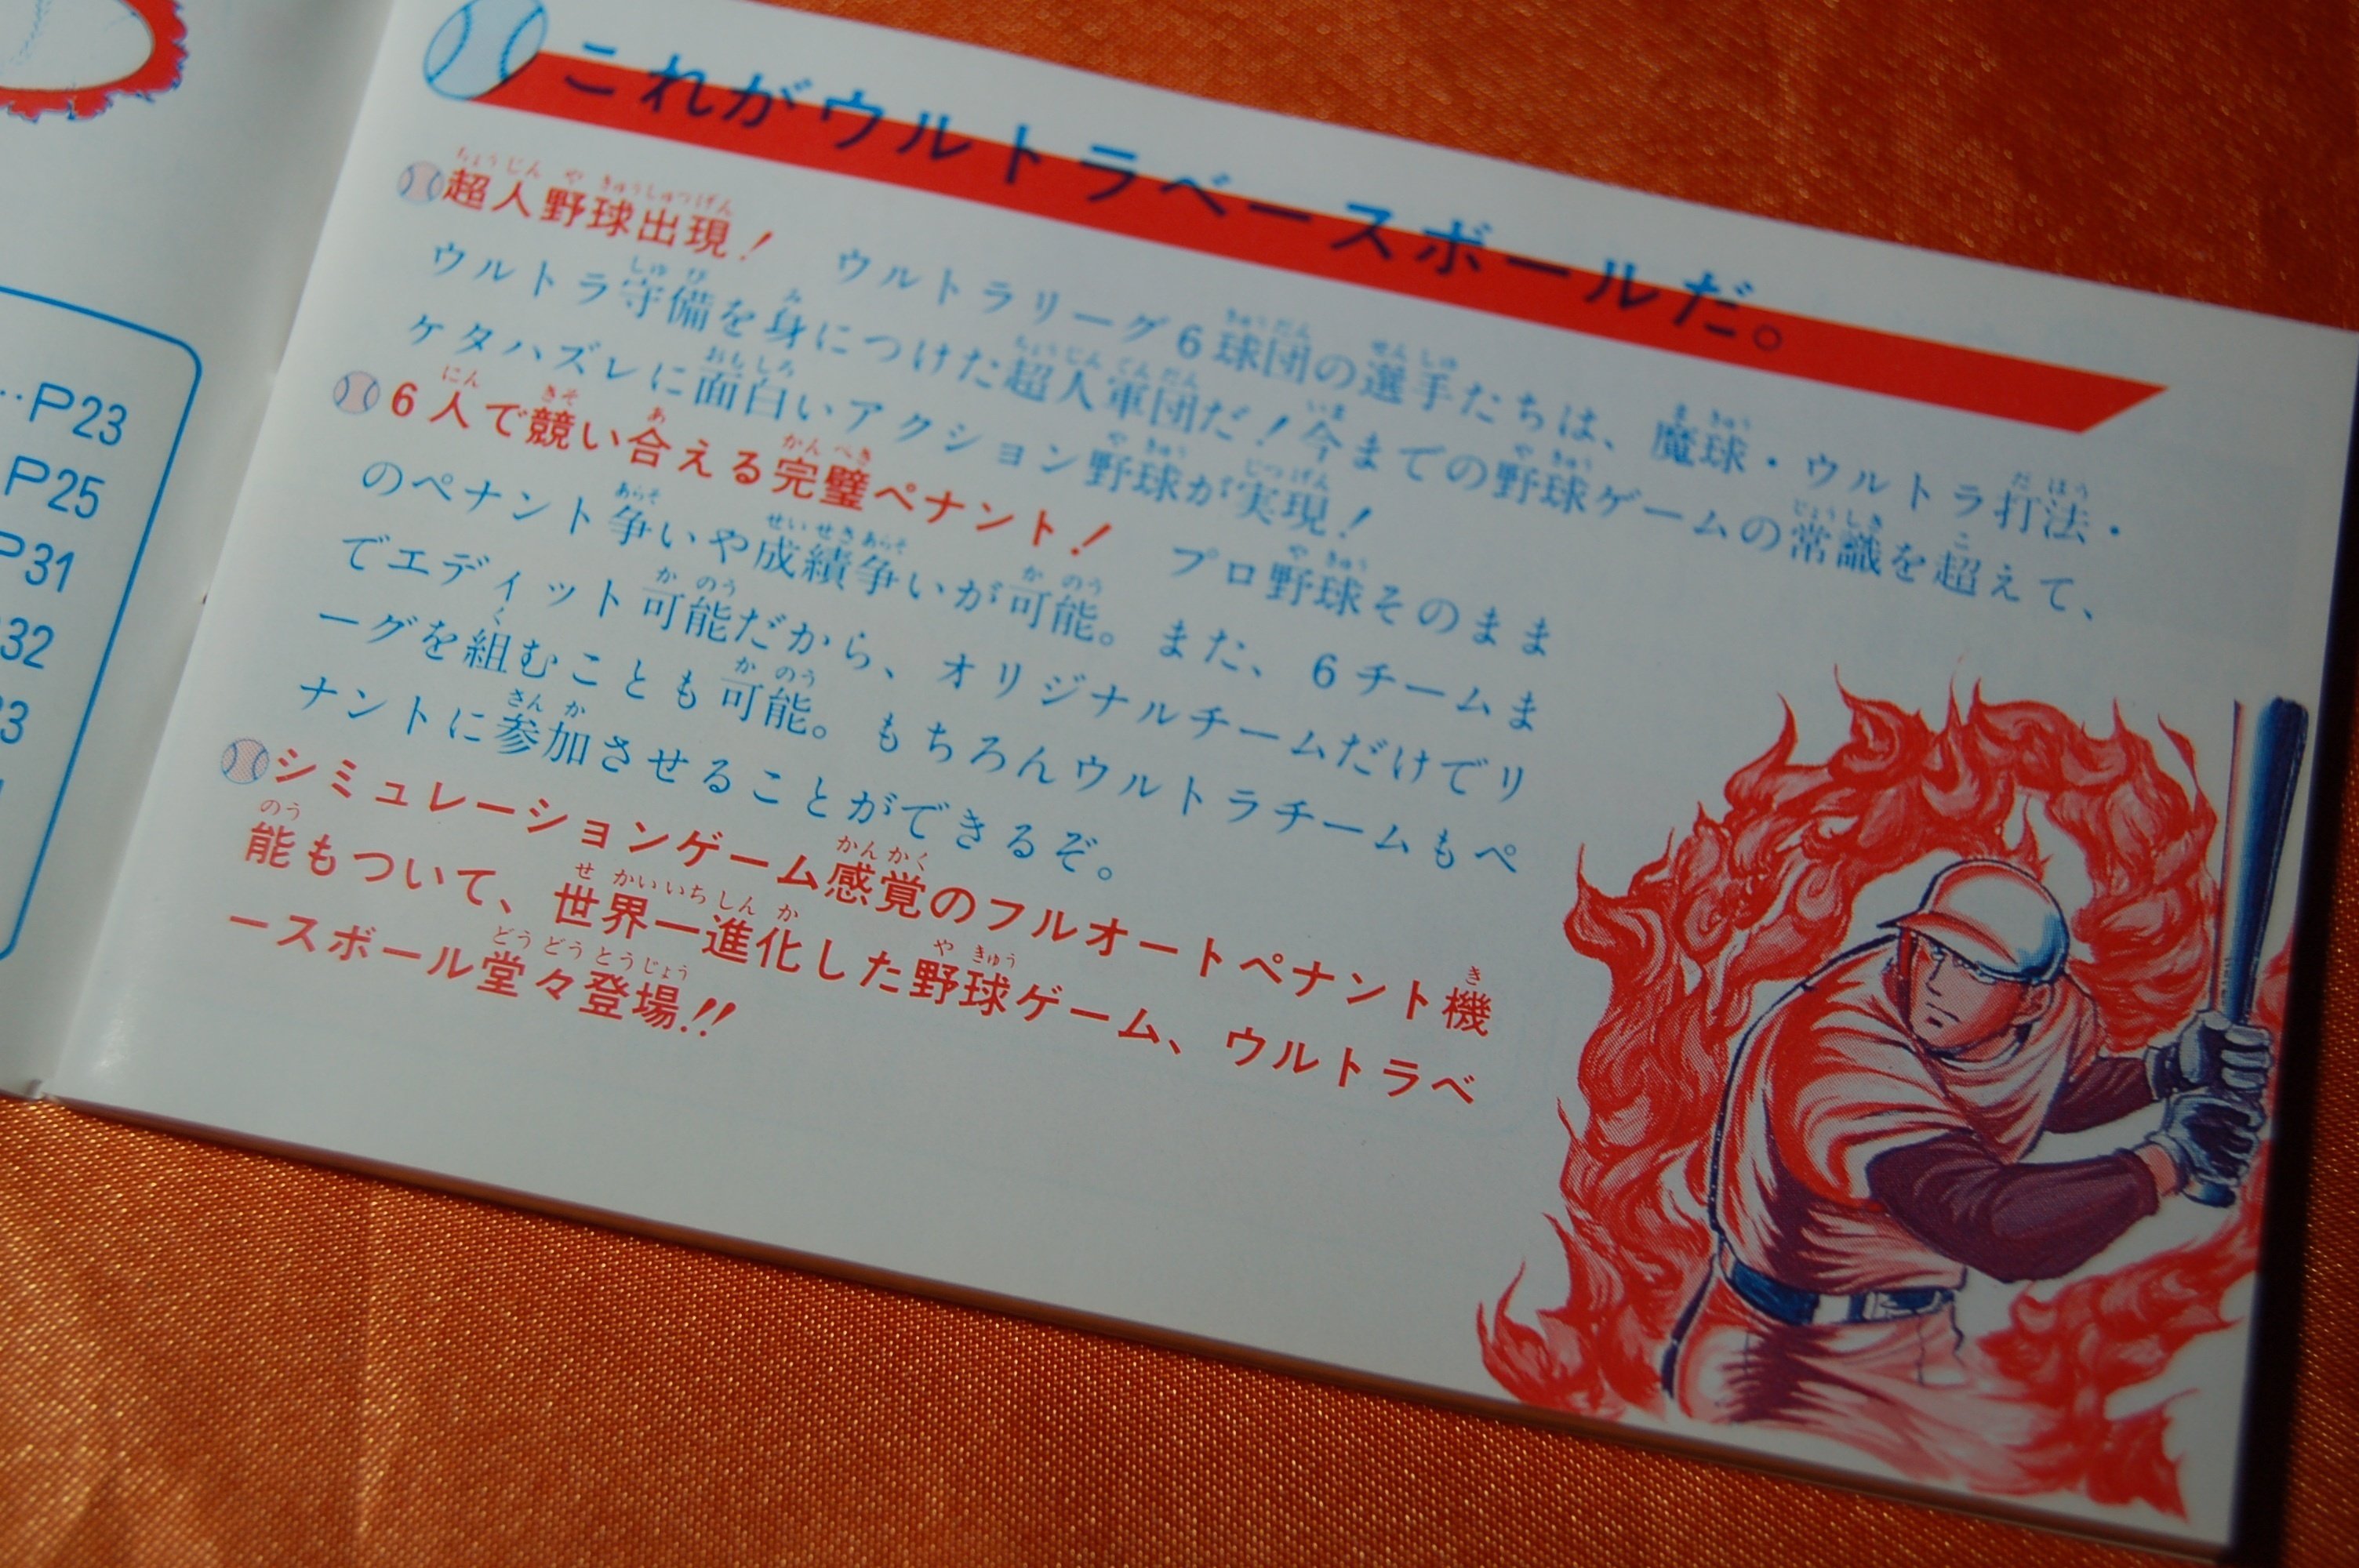 …P23
P25
P31
32
3
これがウルトラベースボールだ。
超人野球出現！　ウルトラリーグ6球団の選手たちは、魔球・ウルトラ打法・
ウルトラ守備を身につけた超人軍団だ！今までの野球ゲームの常識を超えて、
ケタハズレに面白いアクション野球が実現！
6人で競い合える完璧ペナント！　プロ野球そのまま
のペナント争いや成績争いが可能。また、6チームま
でエディット可能だから、オリジナルチームだけでリ
ーグを組むことも可能。もちろんウルトラチームもペ
ナントに参加させることができるぞ。
シミュレーションゲーム感覚のフルオートペナント機
能もついて、世界一進化した野球ゲーム、ウルトラベ
ースボール堂々登場!!